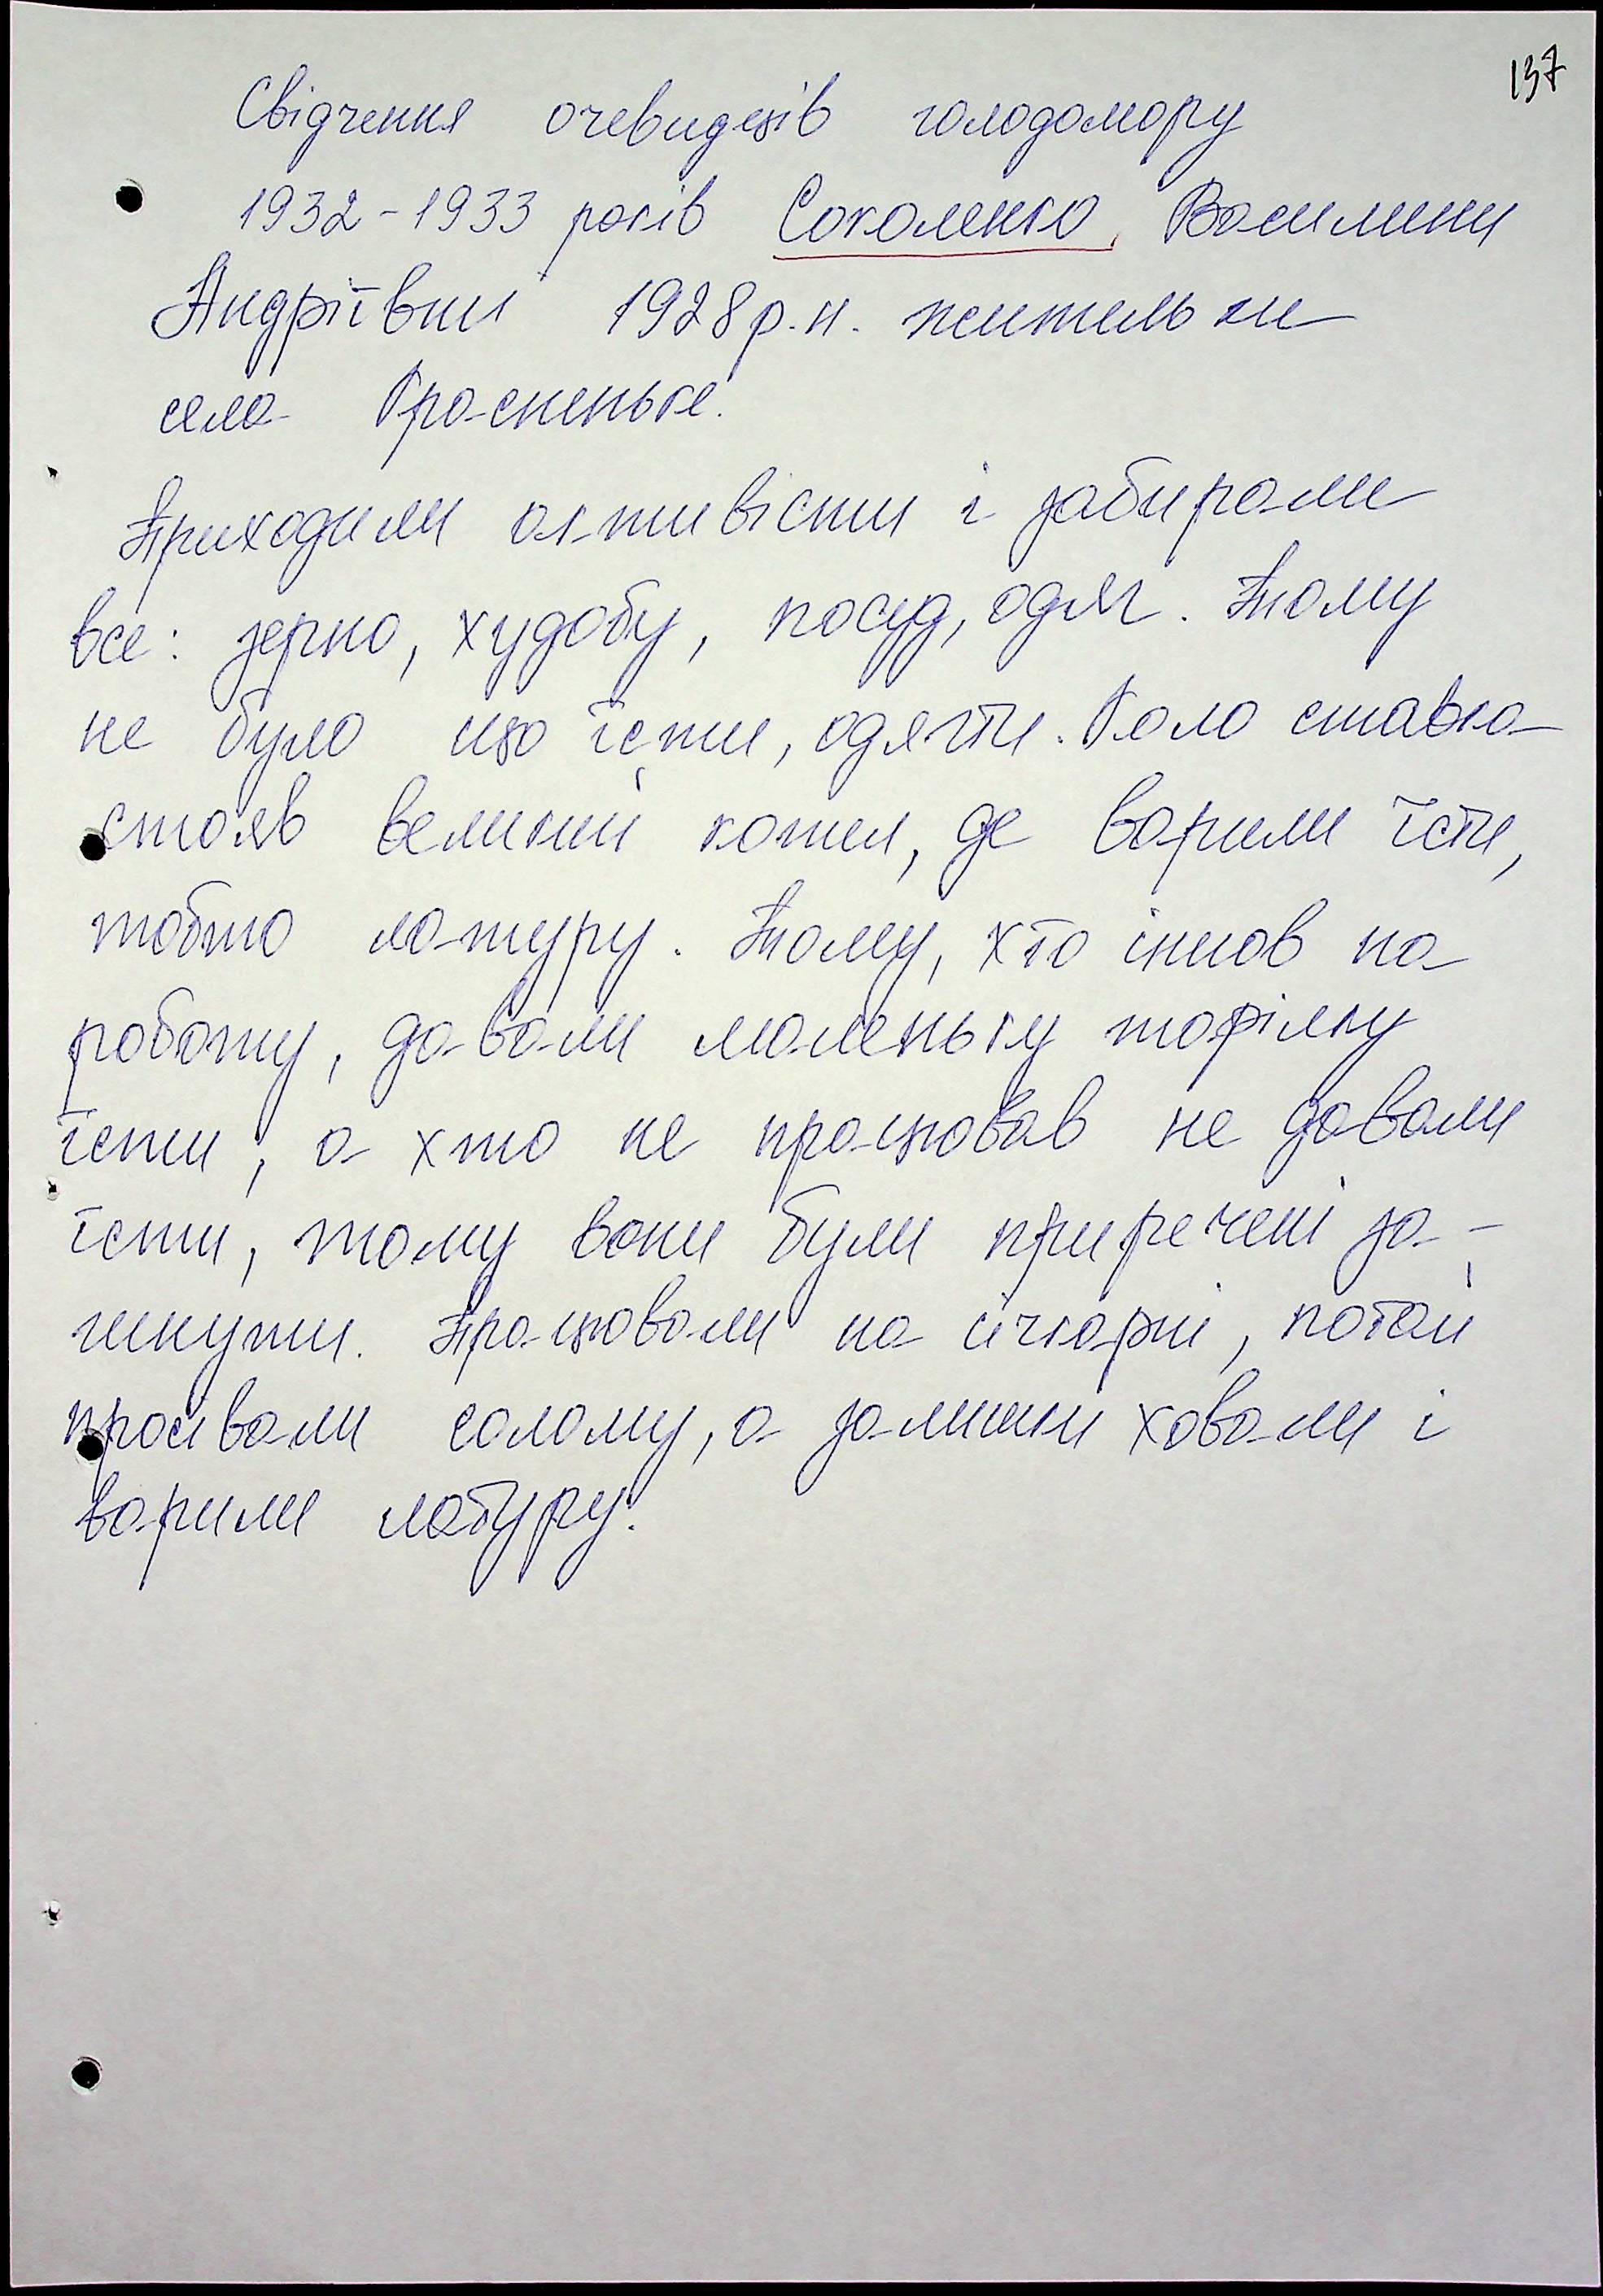 137
Свідчення очевидців голодомору
1932-1933 років Соколенко Василини
Андріївни 1928 р.н. жительки
села Красненьке.
Приходили активісти і забирали
все: зерно, худобу, посуд, одяг. Тому
не було що їсти, одягти. Коло ставка
стояв великий котел, де варили їсти,
тобто латуру. Тому, хто ішов на
роботу, давали маленьку тафілку
їсти, а хто не працював не давали
їсти, тому вони були приречені за-
гинути. Працювали на січкарні, потай
просівали солому, а залишки ховали і
варили латуру.